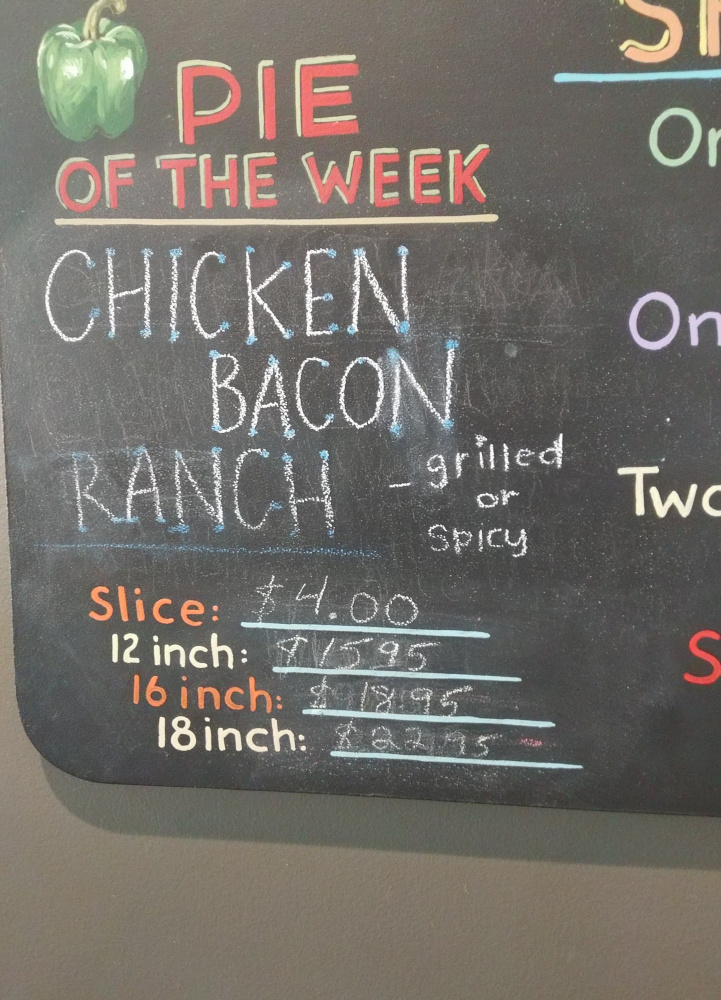 PIE
OF THE WEEK
CHICKEN
BACON
RANCH - grilled
or
spicy
Slice: $4.00
12 inch: $15.95
16 inch: $18.95
18 inch: $22.95
On
Two